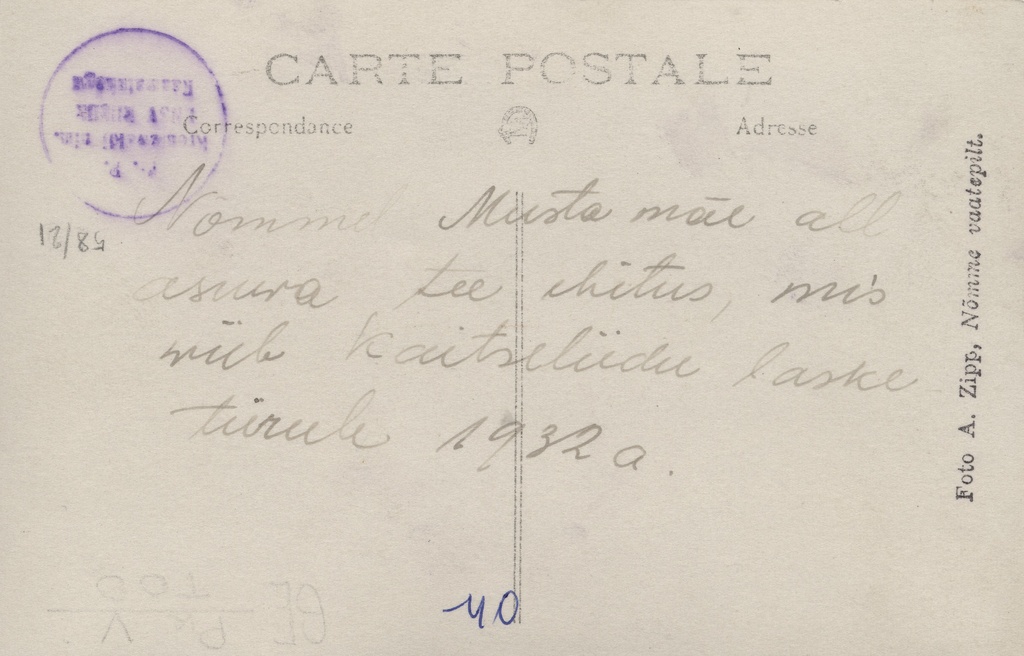 CARTE POSTALE
Correspondance
Adresse
Nõmmel Musta mäe all
asuva tee ehitus, mis
viib Kaitseliidu laske
tiirule 1932 a.
Foto A. Zipp, Nõmme vaatepilt.
58/21
40